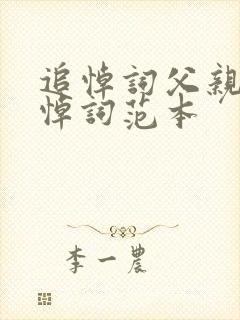 追悼詞父親
悼詞范本
李一農